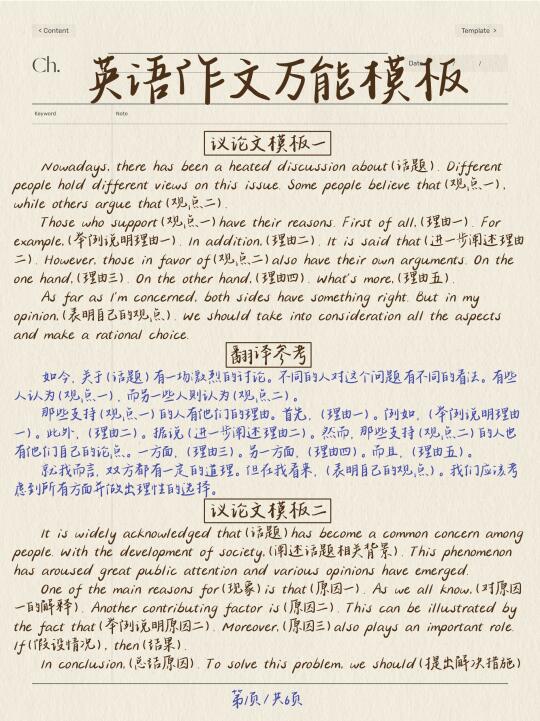 < Content
Template >
Ch.
英语作文万能模板
Date
/
Keyword
Note
议论文模板一
Nowadays, there has been a heated discussion about (话题). Different
people hold different views on this issue. Some people believe that (观点一),
while others argue that (观点二).
Those who support (观点一) have their reasons. First of all, (理由一). For
example, (举例说明理由一). In addition, (理由二). It is said that (进一步阐述理由
二). However, those in favor of (观点二) also have their own arguments. On the
one hand, (理由三). On the other hand, (理由四). What's more, (理由五).
As far as I'm concerned, both sides have something right. But in my
opinion, (表明自己的观点). We should take into consideration all the aspects
and make a rational choice.
翻译参考
如今, 关于(话题)有一场激烈的讨论。不同的人对这个问题有不同的看法。有些
人认为(观点一), 而另一些人则认为(观点二)。
那些支持(观点一)的人有他们的理由。首先, (理由一)。例如, (举例说明理由
一)。此外, (理由二)。据说(进一步阐述理由二)。然而, 那些支持(观点二)的人也
有他们自己的论点。一方面, (理由三)。另一方面, (理由四)。而且, (理由五)。
就我而言, 双方都有一定的道理。但在我看来, (表明自己的观点)。我们应该考
虑到所有方面并做出理性的选择。
议论文模板二
It is widely acknowledged that (话题) has become a common concern among
people. With the development of society, (阐述话题相关背景). This phenomenon
has aroused great public attention and various opinions have emerged.
One of the main reasons for (现象) is that (原因一). As we all know, (对原因
一的解释). Another contributing factor is (原因二). This can be illustrated by
the fact that (举例说明原因二). Moreover, (原因三) also plays an important role.
If (假设情况), then (结果).
In conclusion, (总结原因). To solve this problem, we should (提出解决措施)
第1页 / 共6页